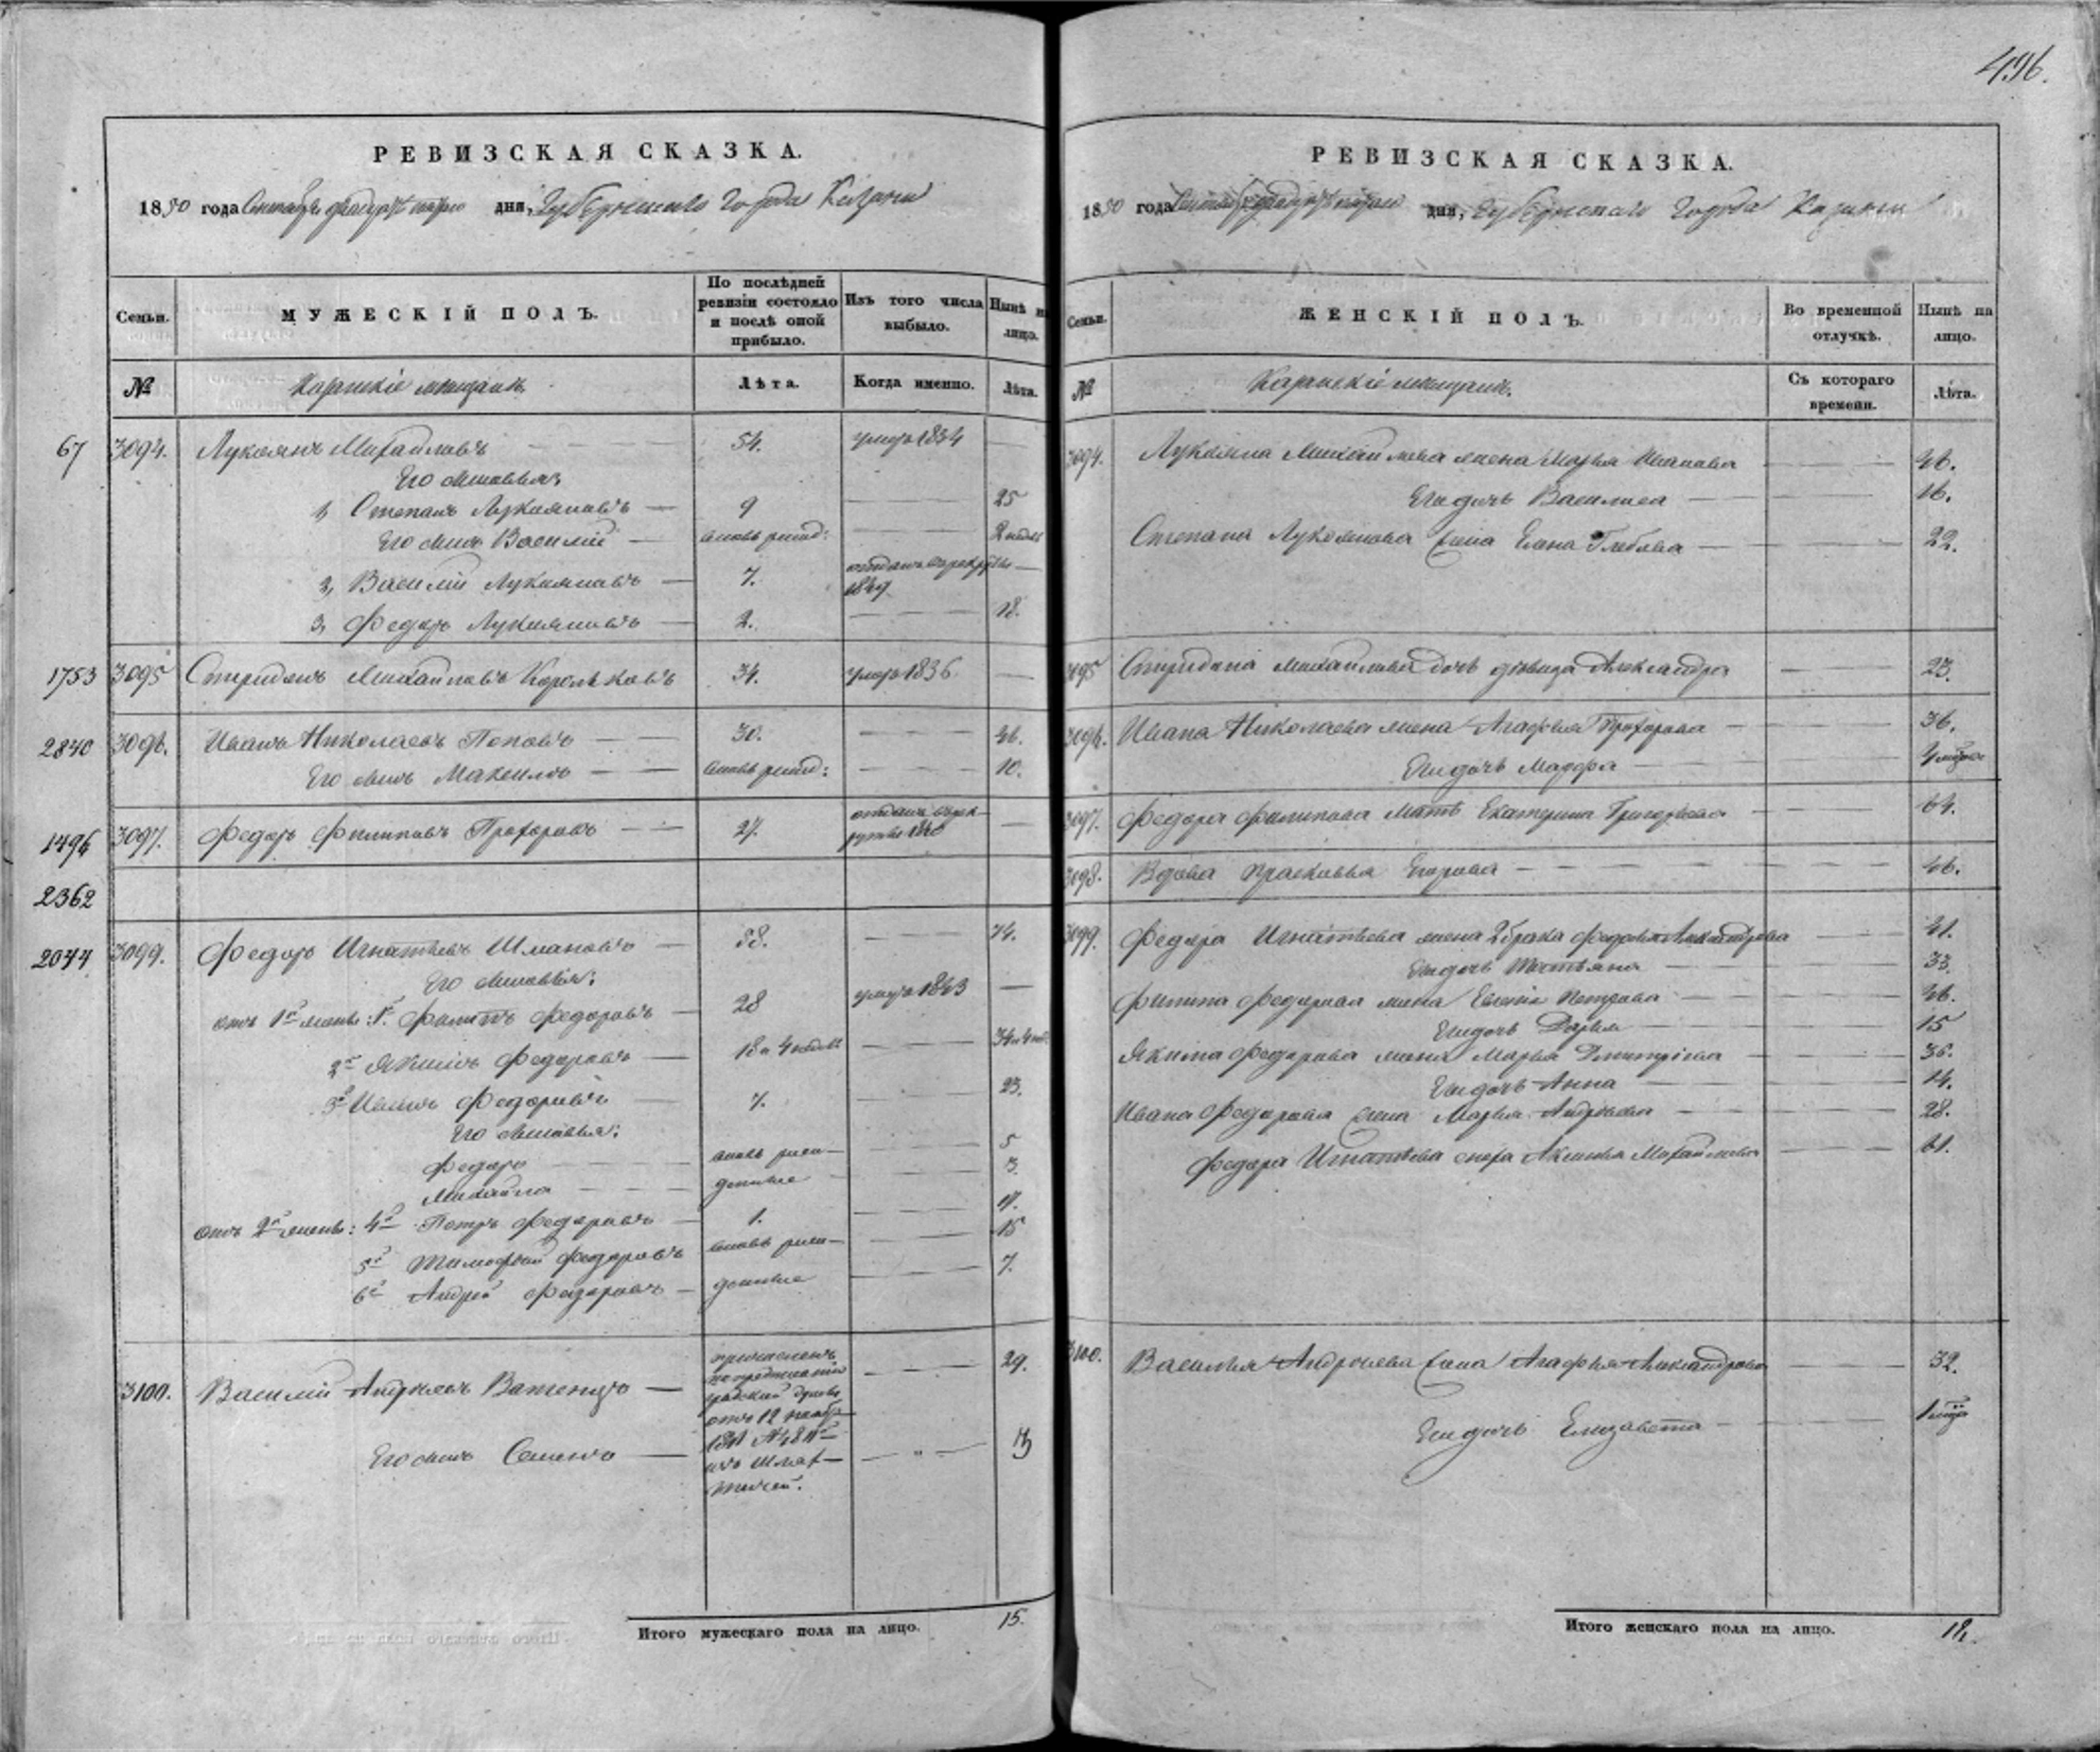 РЕВИЗСКАЯ СКАЗКА.
1850 года Сентября двадцать дня, Губернскаго Города Казани
Семьи.
МУЖЕСКІЙ ПОЛЪ.
По послѣдней ревизіи состояло и послѣ оной прибыло.
Изъ того числа выбыло.
Нынѣ на лицо.
№
Казанскіе мещане.
Лѣта.
Когда именно.
Лѣта.
67 3094. Лукоянъ Михайловъ 54. умеръ 1834
Его сыновья:
1, Степанъ Лукояновъ 9 25
Его сынъ Василій вновь рожд: 2 недѣль
2, Василій Лукояновъ 7. отданъ въ рекруты 1849
3, Федоръ Лукояновъ 2. 18.
1753 3095 Спиридонъ Михайловъ Корольковъ 34. умеръ 1836
2840 3096. Иванъ Николаевъ Поповъ 30. 46.
Его сынъ Максимъ вновь рожд: 10.
1496 3097. Федоръ Филиповъ Прохоровъ 27. отданъ въ рекруты 1840
2362
2044 3099. Федоръ Игнатьевъ Шмановъ 58. 74.
Его сыновья:
отъ 1й жены: 1й Филипъ Федоровъ 28 умеръ 1843
2й Якимъ Федоровъ 18 и 4 недѣль 34 и 4 нед.
3й Иванъ Федоровъ 7. 23.
Его сыновья:
Федоръ вновь рож- 5
Михайла денные 3.
отъ 2й жены: 4й Петръ Федоровъ 1. 17.
5й Тимофей Федоровъ вновь рож- 15
6й Андрей Федоровъ денные 7.
3100. Василій Андреевъ 29.
причисленъ
по предписанію
градской думы
отъ 12 ноября
Его сынъ Семенъ
Итого мужескаго пола на лицо. 15.
496.
РЕВИЗСКАЯ СКАЗКА.
1850 года дня, Губернскаго Города Казани
Семьи.
ЖЕНСКІЙ ПОЛЪ.
Во временной отлучкѣ.
Нынѣ на лицо.
№
Казанскіе мещане.
Съ котораго времени.
Лѣта.
3094. Лукояна Михайлова жена Марья Иванова 46.
Ея дочь Василиса 16.
Степана Лукоянова жена Елена Глебова 22.
3095 Спиридона Михайлова дочь девица Александра 23.
3096. Ивана Николаева жена Агафья Прохорова 36.
Ея дочь Марфа 4 месяца
3097. Федора Филипова мать Екатерина Григорьева 64.
3098. Вдова Прасковья Егорова 46.
3099. Федора Игнатьева жена 2 брака Федосья Александрова 41.
Ея дочь Татьяна 33.
Филипа Федорова жена Евгенія Петрова 46.
Ея дочь Дарья 15
Якима Федорова жена Марья Дмитріева 36.
Ея дочь Анна 14.
Ивана Федорова жена Марья Андреева 28.
Федора Игнатьева сноха Аксинья Михайлова 61.
3100. Василья Андреева жена Агафья Александрова 32.
Ея дочь Елизавета
Итого женскаго пола на лицо. 18.